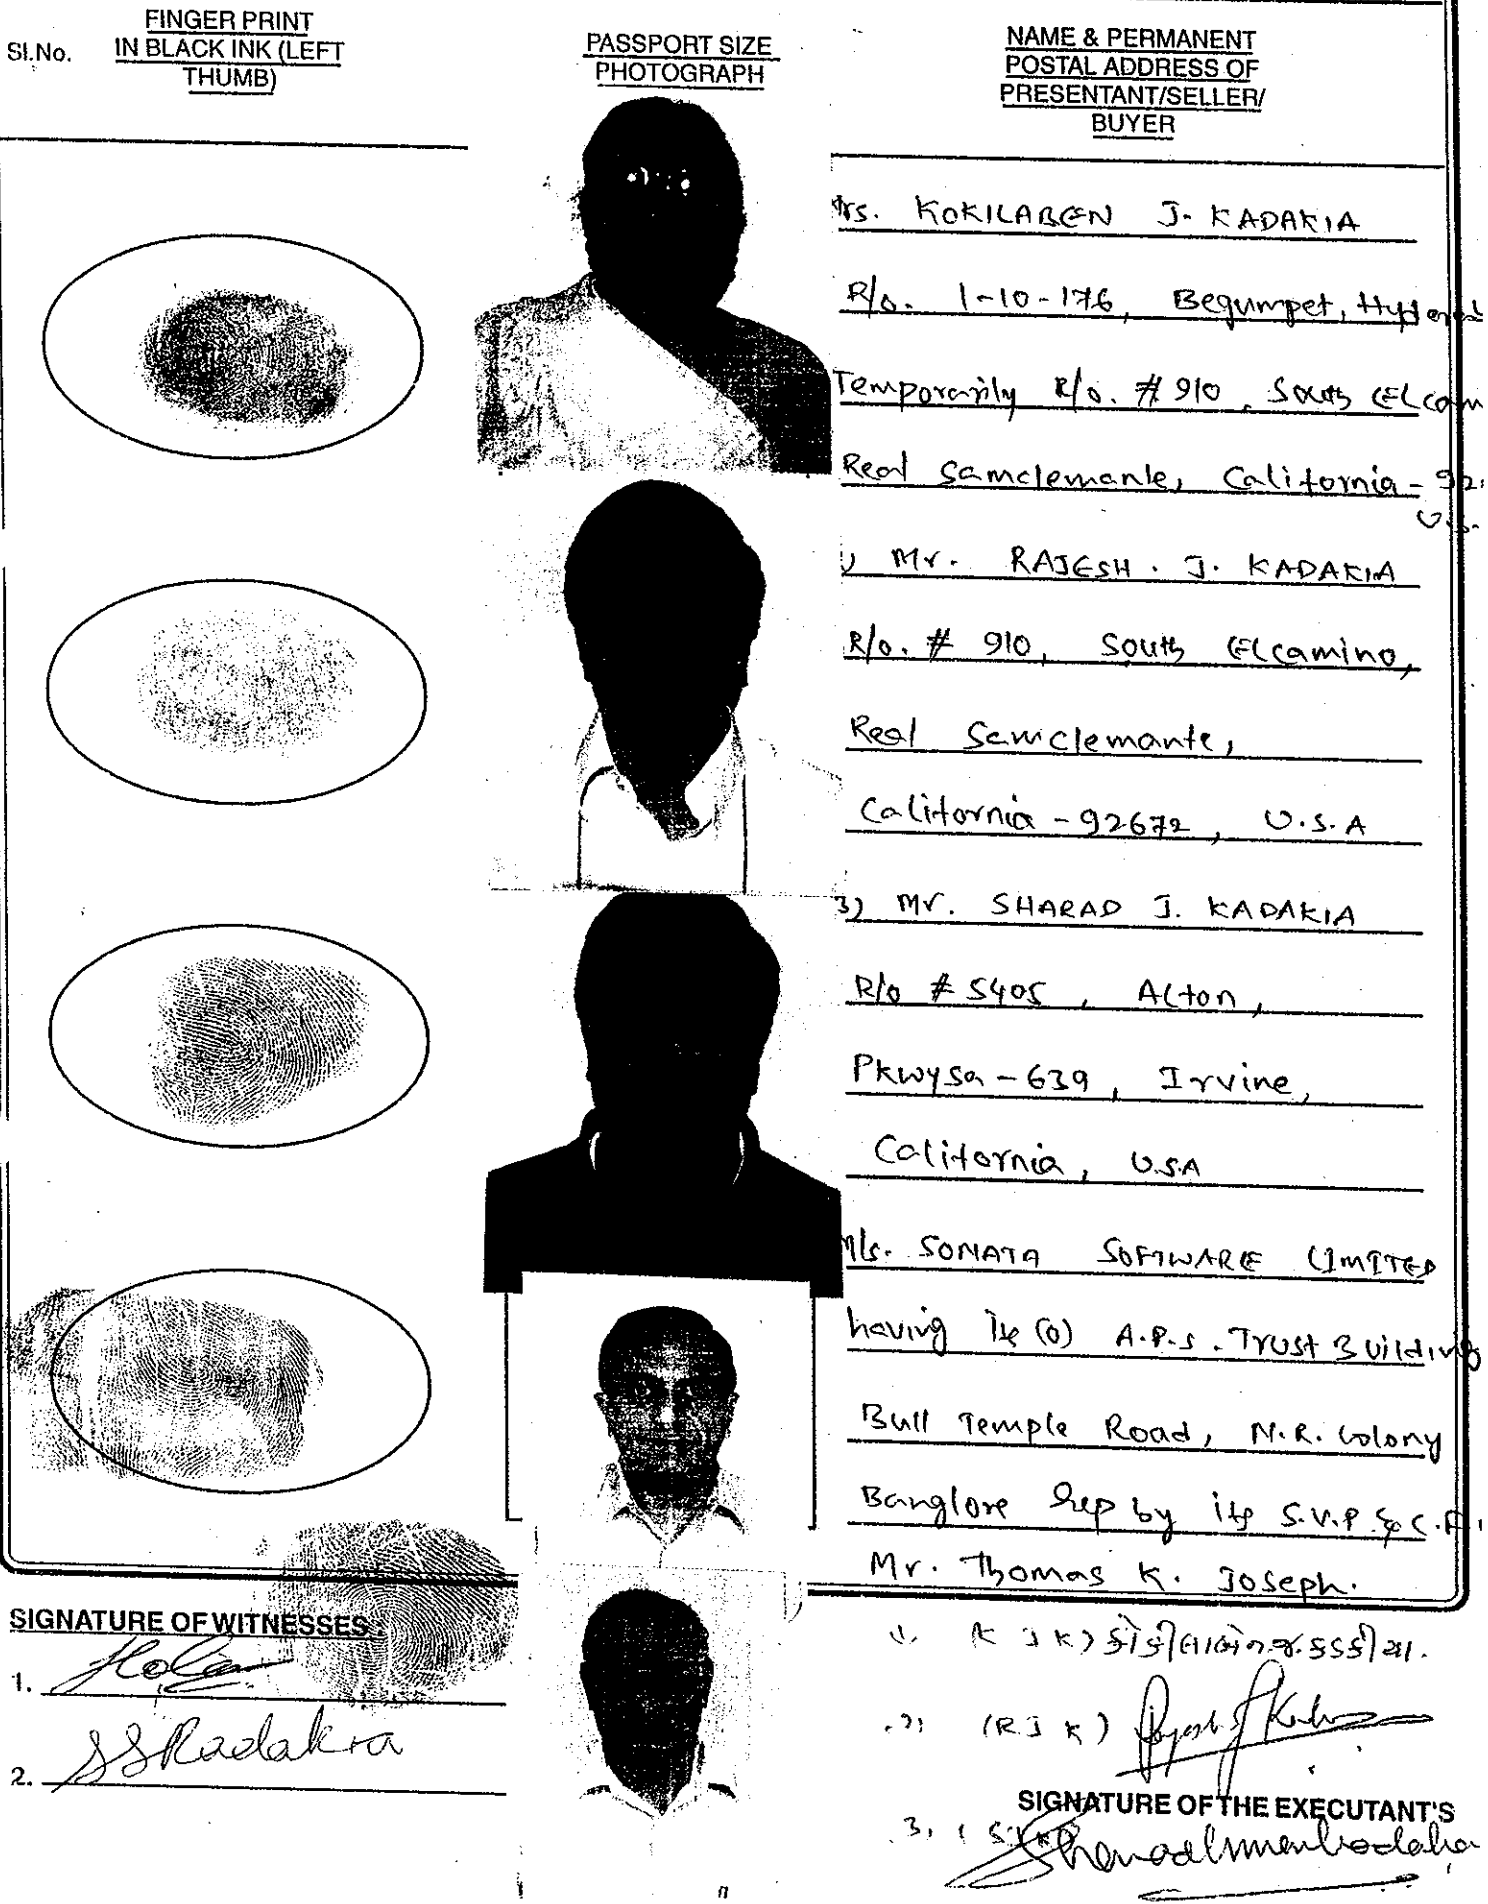 Sl.No.
FINGER PRINT
IN BLACK INK (LEFT
THUMB)
PASSPORT SIZE
PHOTOGRAPH
NAME & PERMANENT
POSTAL ADDRESS OF
PRESENTANT/SELLER/
BUYER
Mrs. KOKILABEN J. KADAKIA
R/o. 1-10-176, Begumpet, Hyderabad
Temporarily R/o. # 910, South Elcamin
Real Samclemante, California - 92
U.S.
Mr. RAJESH. J. KADAKIA
R/o. # 910, South Elcamino,
Real Samclemante,
California - 92672, U.S.A
3) Mr. SHARAD J. KADAKIA
R/o # 5405, Alton,
Pkwysa - 639, Irvine,
California, U.S.A
M/s. SONATA SOFTWARE LIMITED
having its (O) A.P.S. Trust Building
Bull Temple Road, N.R. Colony
Banglore rep by its S.V.P & C.F.
Mr. Thomas K. Joseph.
SIGNATURE OF WITNESSES:
1.
2. SSKadakia
1. (K J K) કોકીલાબેન જ. કડકીયા.
2, (R J K)
SIGNATURE OF THE EXECUTANT'S
3, (SJK)